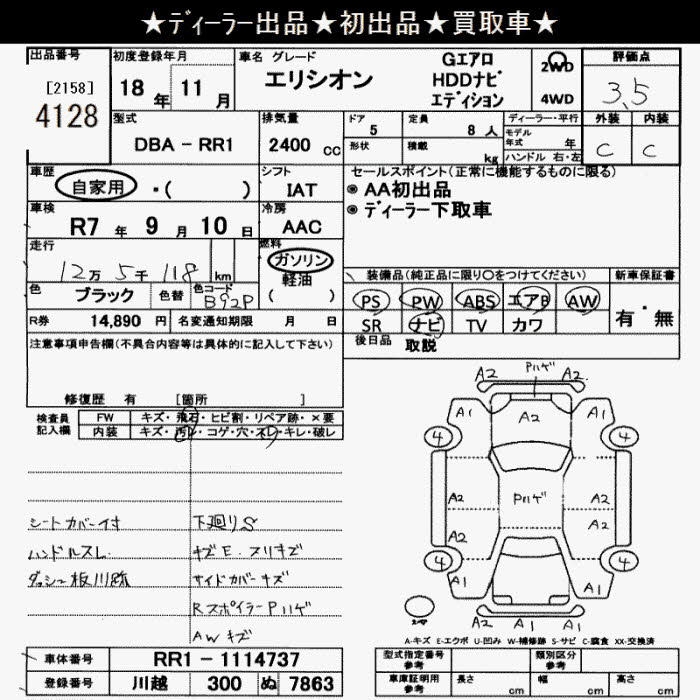 ★ﾃﾞｨｰﾗｰ出品★初出品★買取車★
出品番号
[2158]
4128
初度登録年月
18 年 11 月
車名 グレード
エリシオン
Gエアロ
HDDナビ
エディション
2WD
4WD
評価点
3.5
外装 内装
C C
型式
DBA - RR1
排気量
2400 cc
ドア
5
定員
8 人
形状
積載
kg
ディーラー・平行
モデル年式 年
ハンドル 右・左
車歴
自家用 ・( )
シフト
IAT
セールスポイント(正常に機能するものに限る)
◉ AA初出品
◉ ディーラー下取車
車検
R7 年 9 月 10 日
冷房
AAC
走行
12万 5千 118 km
燃料
ガソリン
軽油
( )
色
ブラック
色替
色コード
B92P
装備品(純正品に限り○をつけてください)
PS PW ABS エアB AW
SR ナビ TV カワ
新車保証書
有・無
R券 14,890 円
名変通知期限 月 日
後日品 取説
注意事項申告欄(不具合内容等は具体的に記入して下さい)
修復歴 有 [箇所 ]
検査員記入欄
FW キズ・飛石・ヒビ割・リペア跡・×要
内装 キズ・汚レ・コゲ・穴・スレ・キレ・破レ
シートカバー付
ハンドルスレ
下廻りS
キズE.スリキズ
サイドカバーキズ
RスポイラーPハゲ
AWキズ
Pハゲ
A2 A2
A1 A2 A1
4 4
A2 Pハゲ A2
A2 A2
4 4
A1 A1
A2 A1 A1
A-キズ E-エクボ U-凹み W-補修跡 S-サビ C-腐食 XX-交換済
車体番号 RR1 - 1114737
登録番号 川越 300 ぬ 7863
型式指定番号
参考
類別区分
参考
車庫証明用
参考
長さ cm
幅 cm
高さ cm